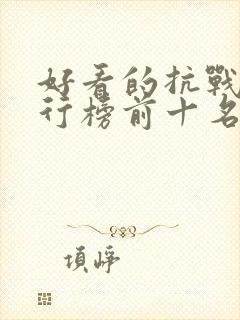 好看的抗戰
行榜前十名
項崢